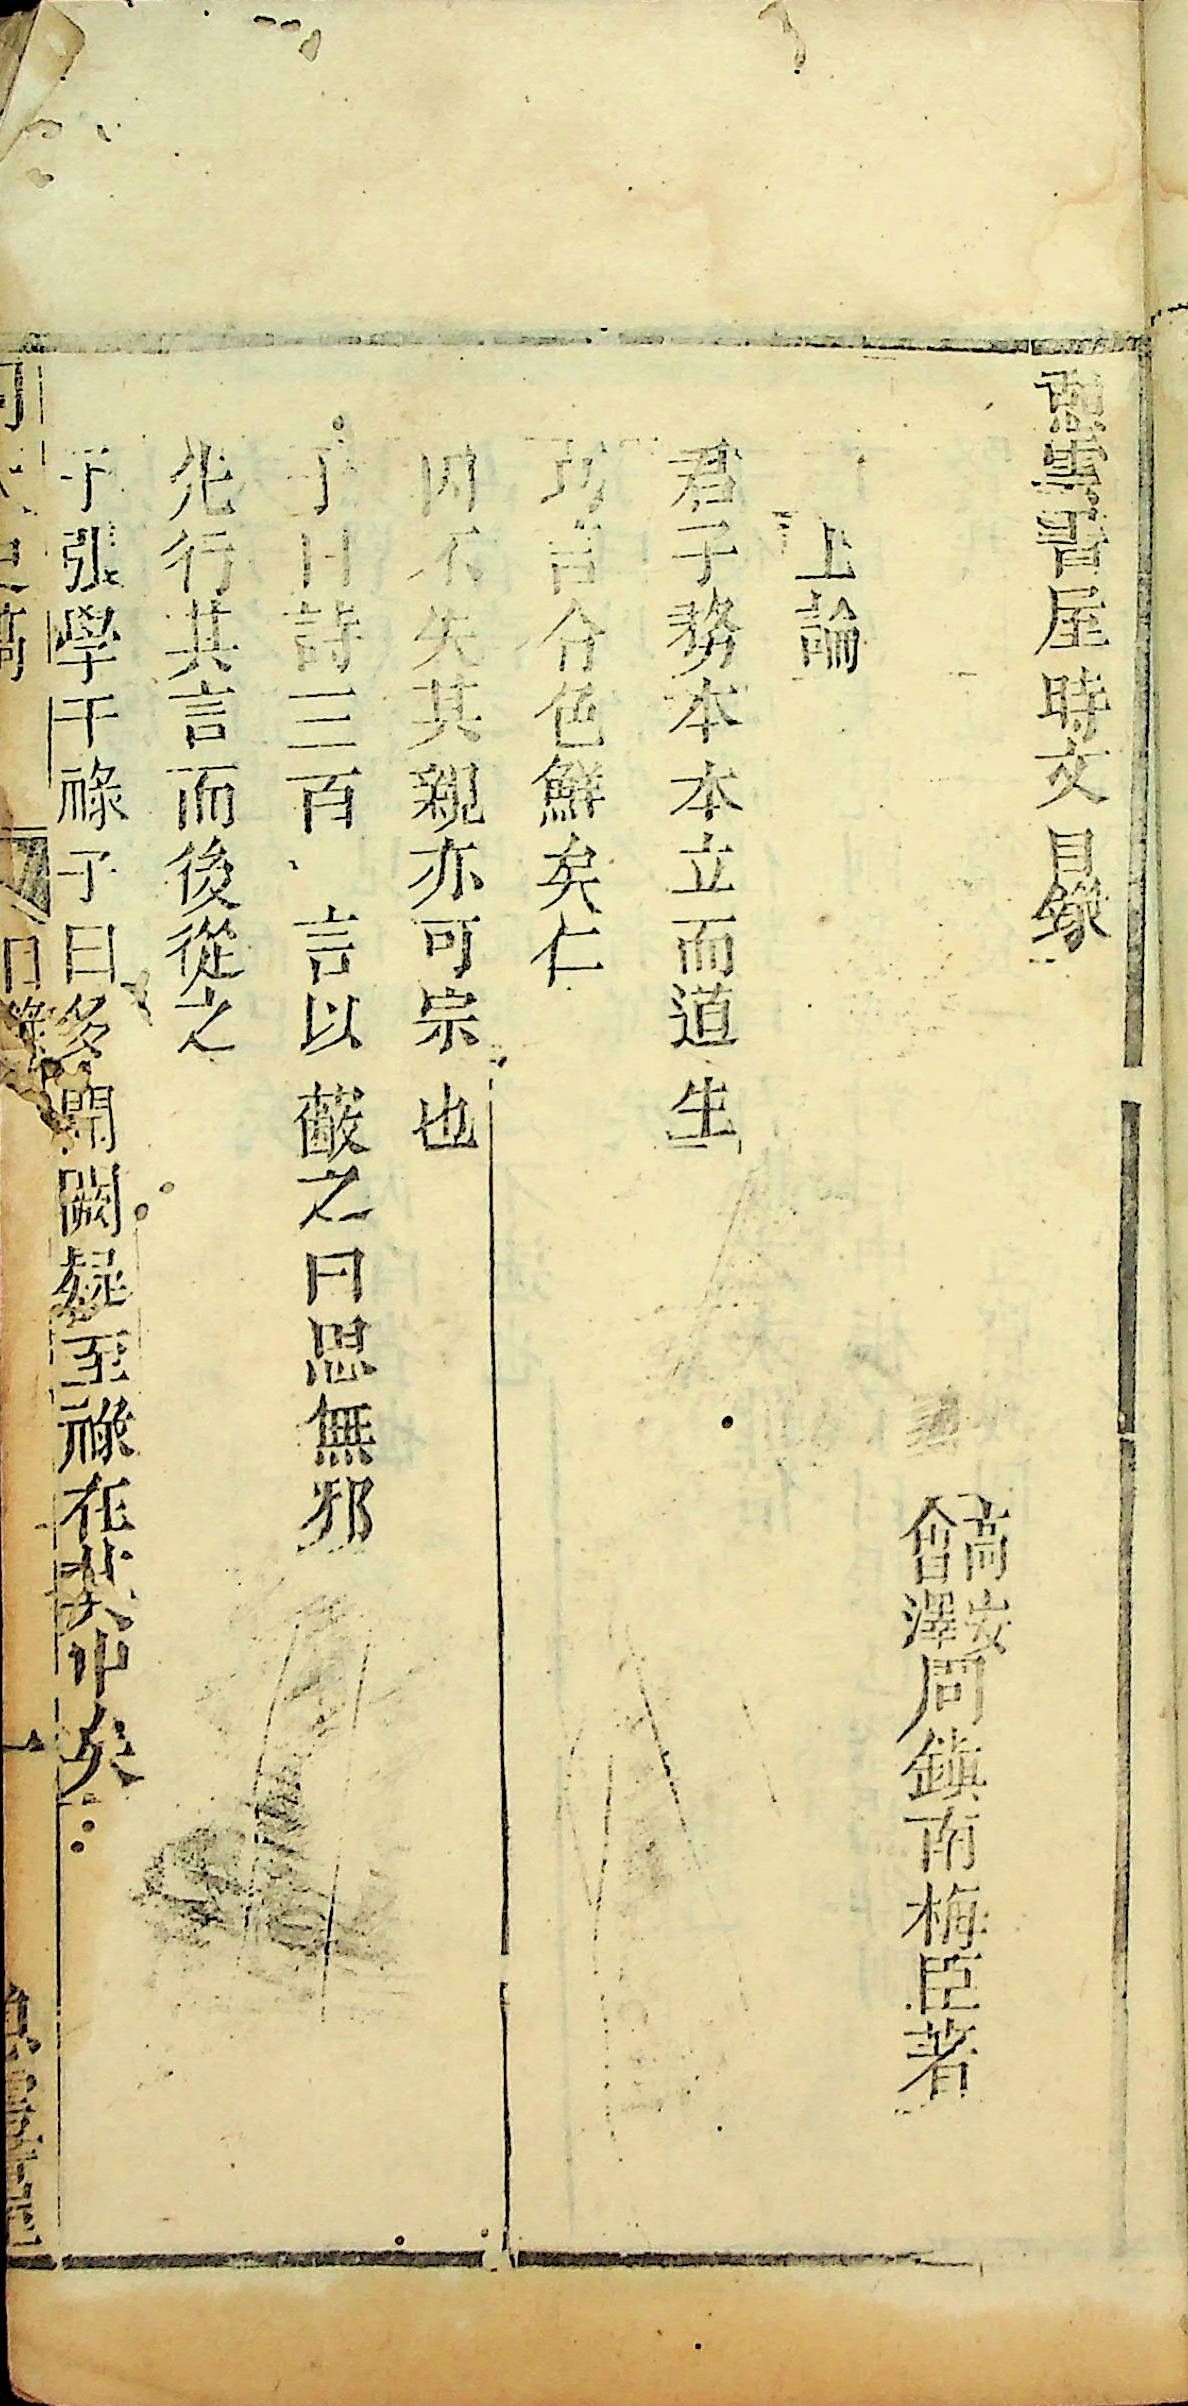 雪書屋時文目錄
高安
會澤
周鎮南梅臣著
上論
君子務本本立而道生
巧言令色鮮矣仁
因不失其親亦可宗也
子曰詩三百一言以蔽之曰思無邪
先行其言而後從之
子張學干祿子曰多聞闕疑至祿在其中矣
目錄
一